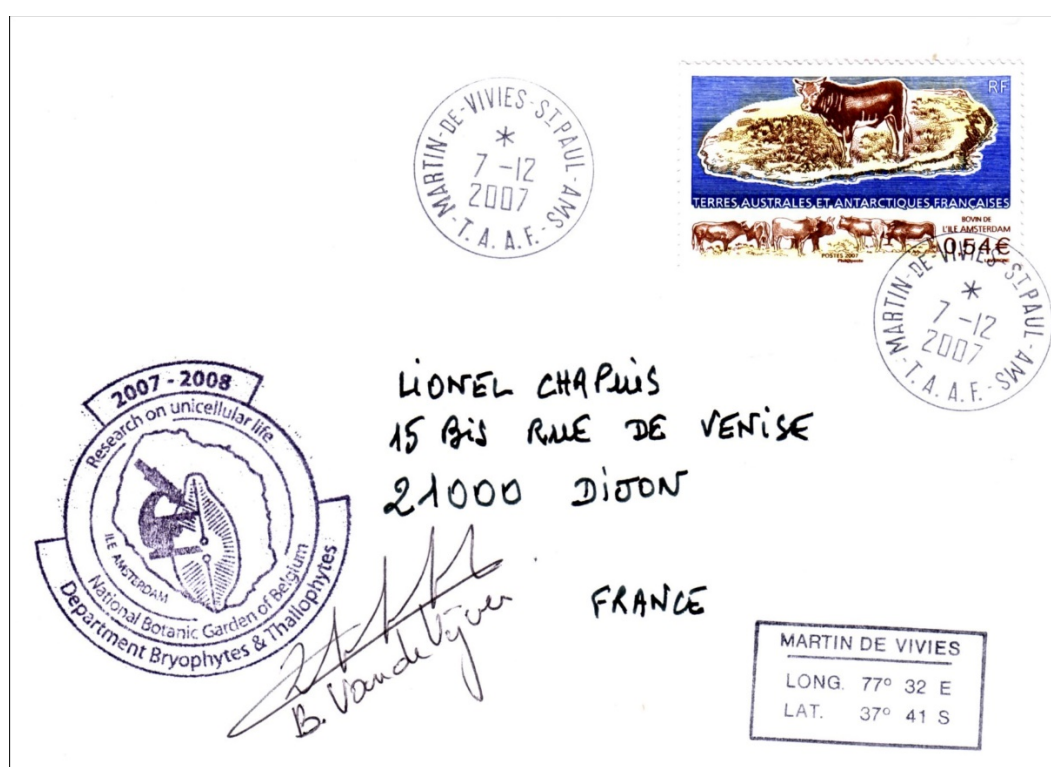 MARTIN-DE-VIVIES-ST PAUL-AMS
*
7 -12
2007
-T. A. A. F.-
RF
TERRES AUSTRALES ET ANTARCTIQUES FRANÇAISES
BOVIN DE
L'ILE AMSTERDAM
0,54€
POSTES 2007
MARTIN-DE-VIVIES-ST PAUL-AMS
*
7 -12
2007
-T. A. A. F.-
2007 - 2008
Research on unicellular life
ILE AMSTERDAM
National Botanic Garden of Belgium
Department Bryophytes & Thallophytes
LIONEL CHAPUIS
15 BiS RUE DE VENISE
21000 DIJON
FRANCE
B. Van de Vijver
MARTIN DE VIVIES
LONG. 77° 32 E
LAT. 37° 41 S